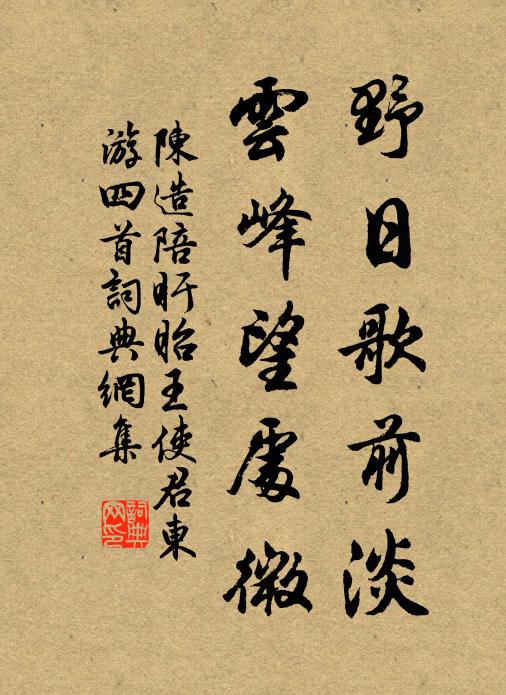 野日歌前淡
雲峰望處微
陳造陪盱眙王使君東
游四首詞典網集
詞典
网印